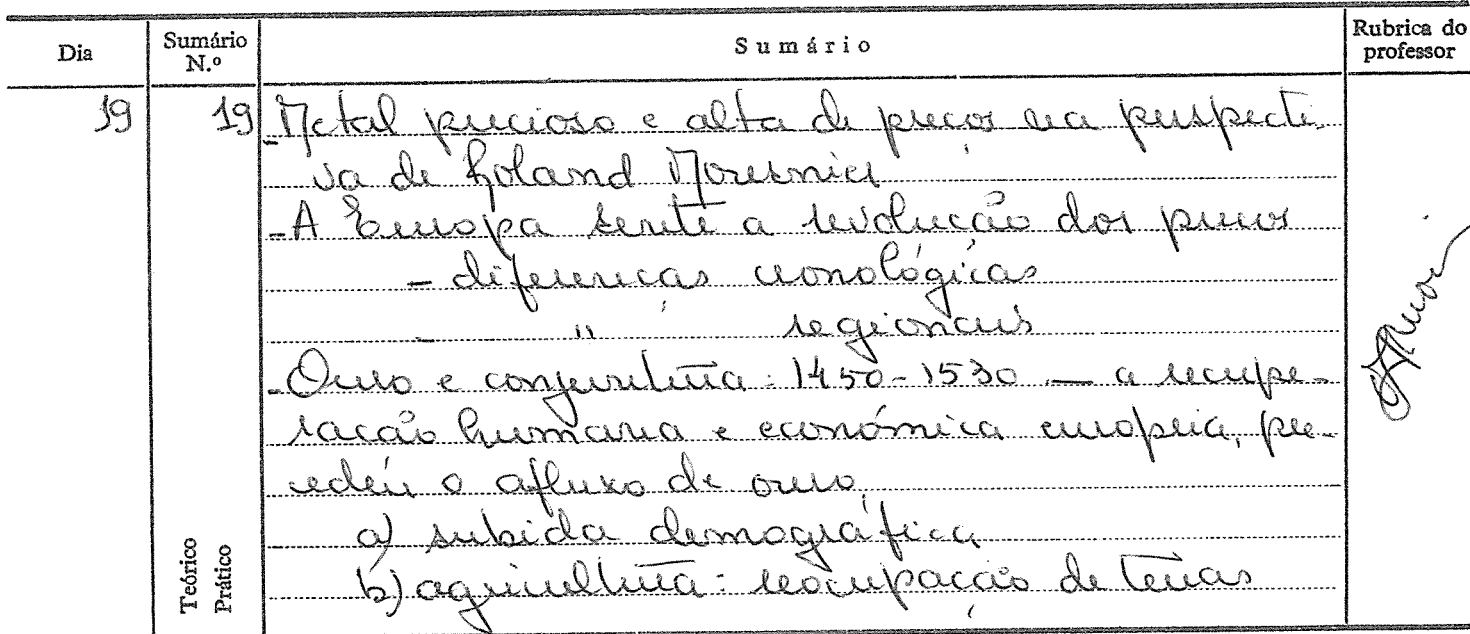 Dia
Sumário N.º
Sumário
Rubrica do professor
19
19
- Metal precioso e alta de preços na perspecti-
va de Roland Mousnier
- A Europa sente a revolução dos preços
- diferenças cronológicas
- " regionais
- Ouro e conjuntura: 1450-1530 — a recupe-
ração humana e económica europeia, pre-
cedeu o afluxo de ouro.
a) subida demográfica
b) agricultura: reocupação de terras
Teórico
Prático